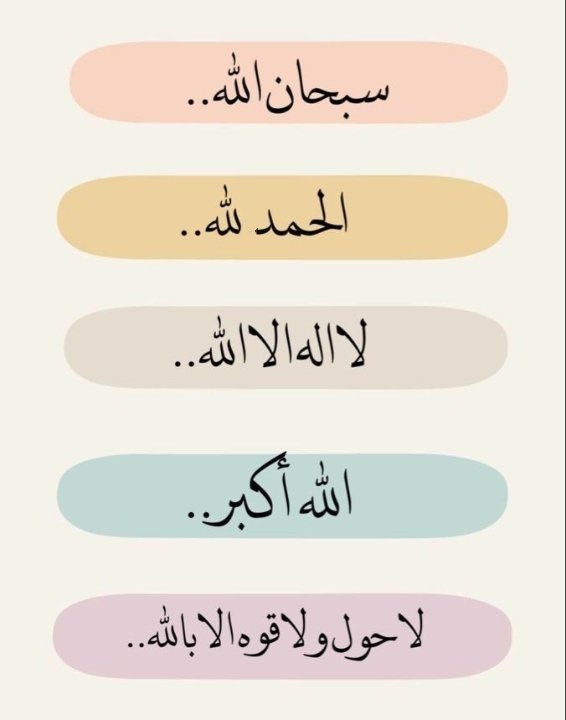 سبحان الله..
الحمد لله..
لا اله الا الله..
الله أكبر..
لا حول ولا قوه الا بالله..